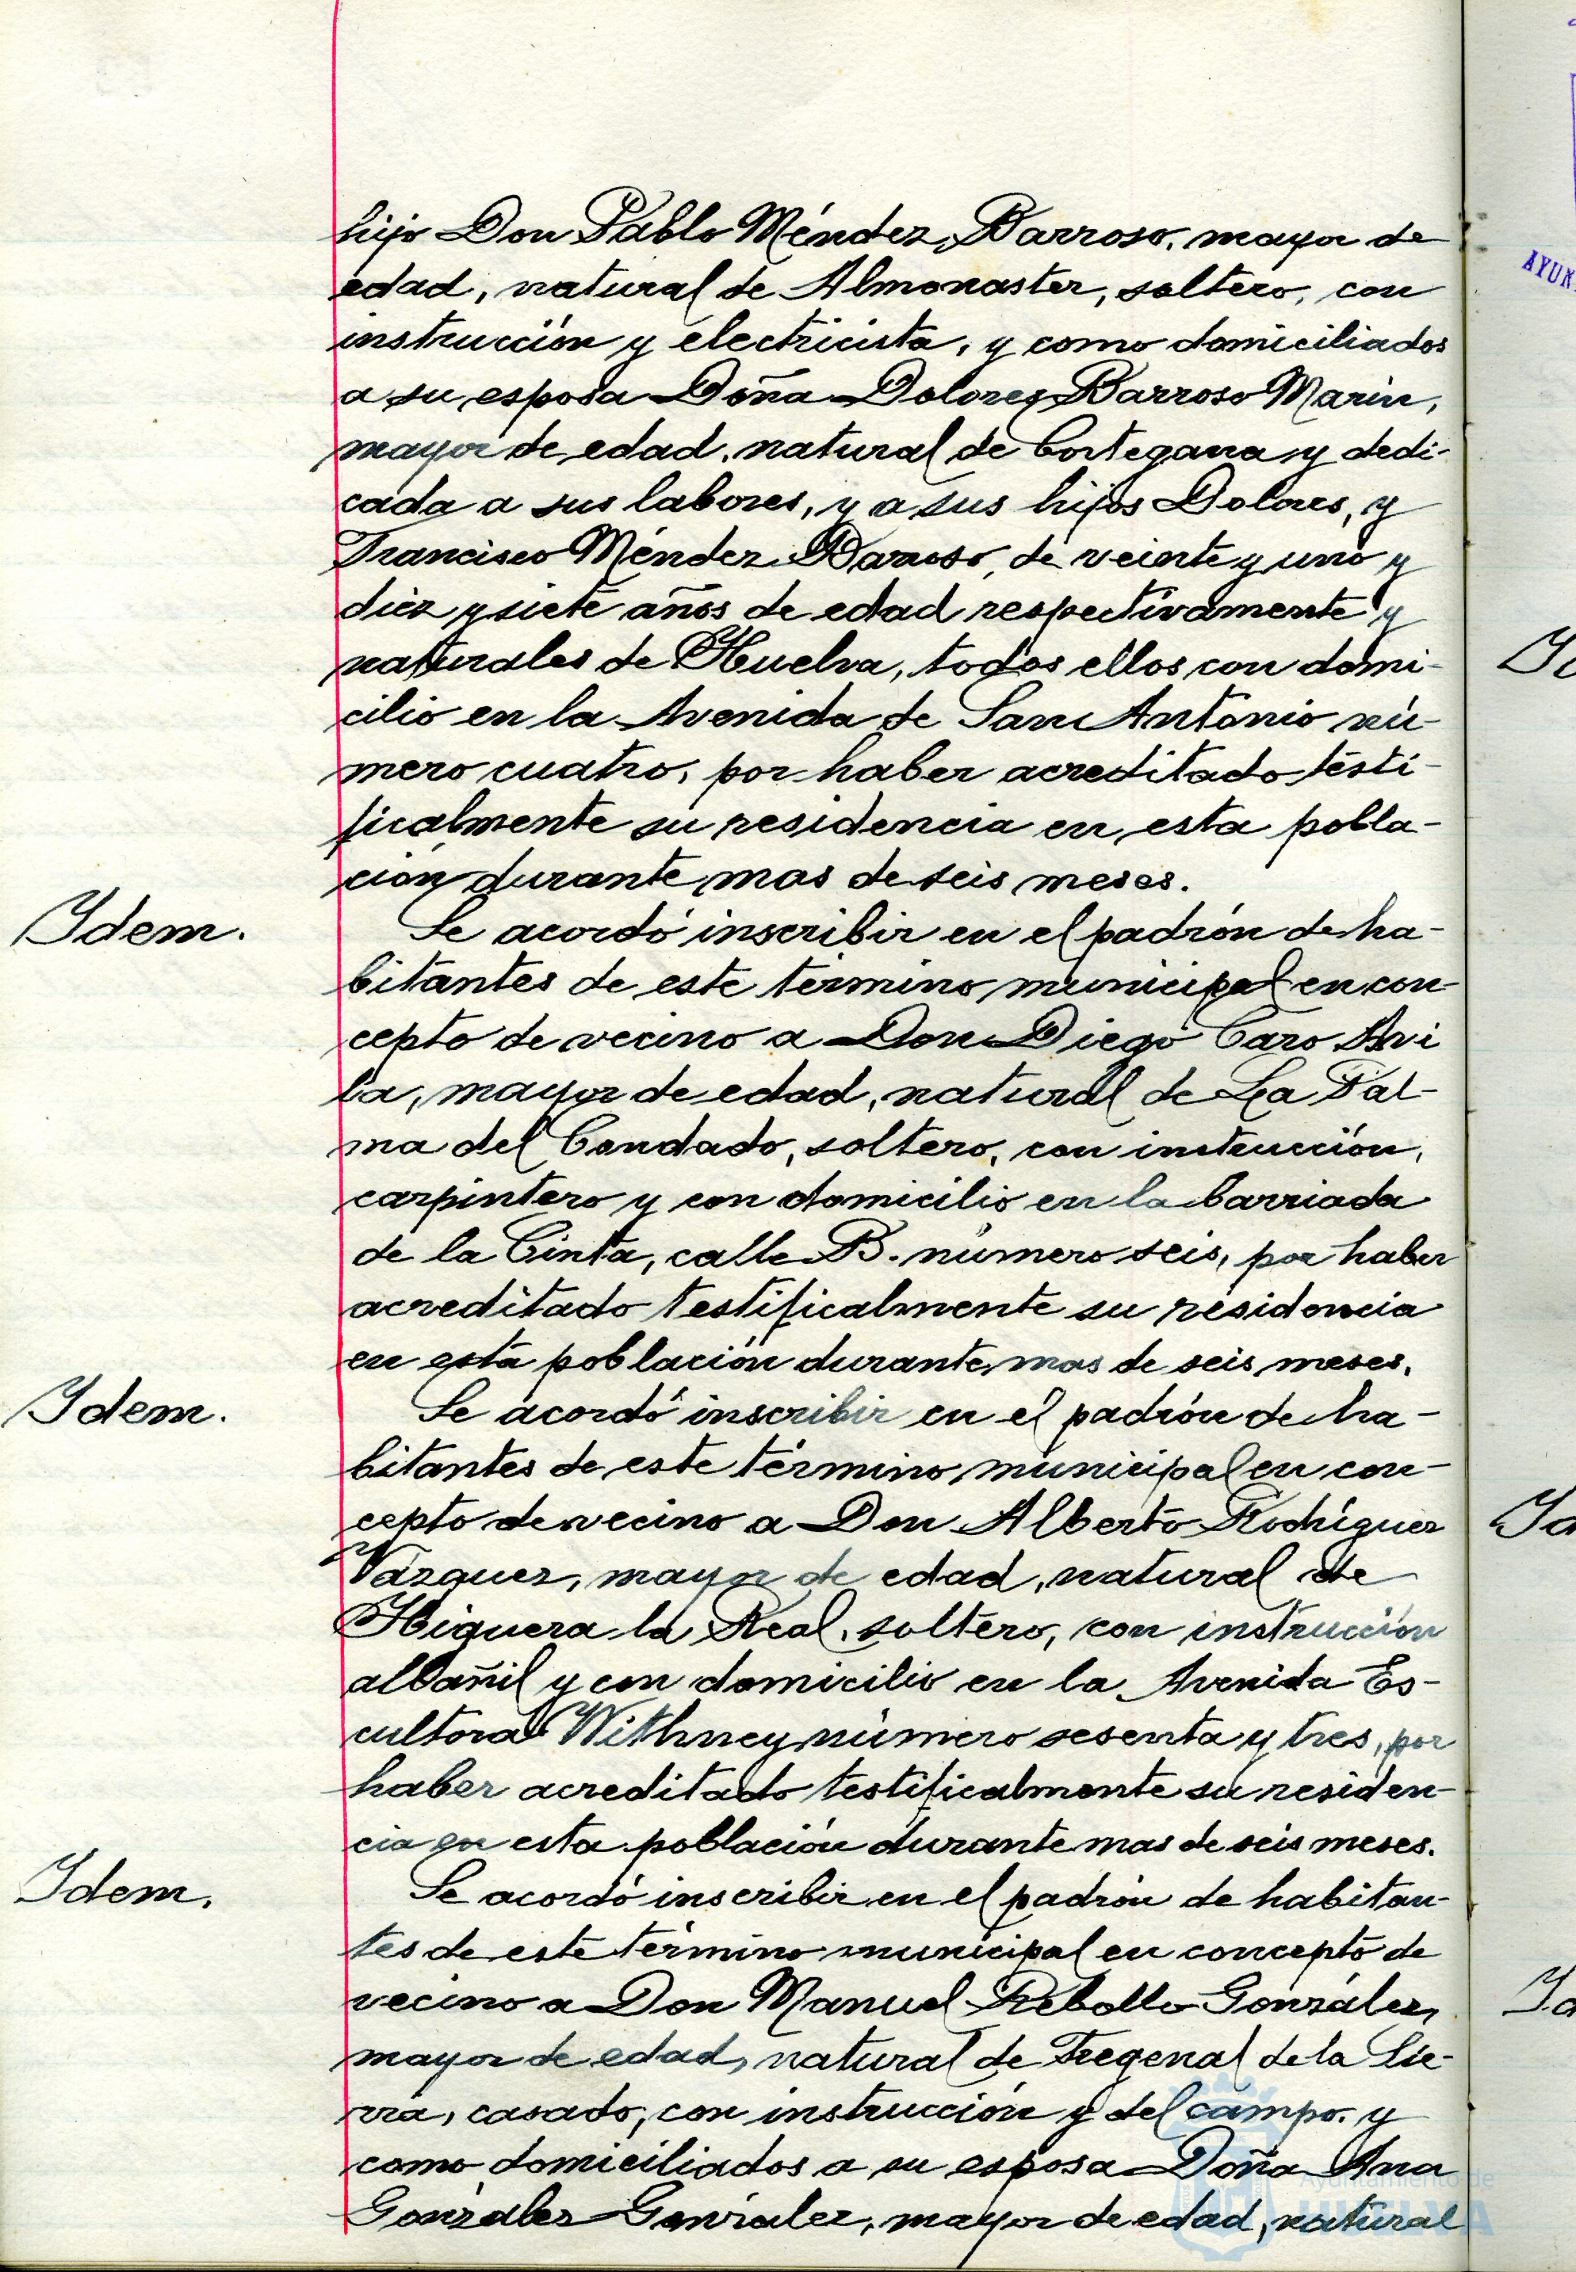 hijo Don Pablo Méndez Barroso, mayor de
edad, natural de Almonaster, soltero, con
instrucción y electricista, y como domiciliados
a su esposa Doña Dolores Barroso Marin,
mayor de edad, natural de Cortegana y dedi-
cada a sus labores, y a sus hijos Dolores, y
Francisco Méndez Barroso, de veinte y uno y
diez y siete años de edad respectivamente y
naturales de Huelva, todos ellos con domi-
cilio en la Avenida de San Antonio nú-
mero cuatro, por haber acreditado testi-
ficalmente su residencia en esta pobla-
ción durante mas de seis meses.
Idem.
Se acordó inscribir en el padrón de ha-
bitantes de este término municipal en con-
cepto de vecino a Don Diego Caro Avi
la, mayor de edad, natural de La Pal-
ma del Condado, soltero, con instrucción,
carpintero y con domicilio en la barriada
de la Cinta, calle B. número seis, por haber
acreditado testificalmente su residencia
en esta población durante mas de seis meses.
Idem.
Se acordó inscribir en el padrón de ha-
bitantes de este término municipal en con-
cepto de vecino a Don Alberto Rodríguez
Vázquez, mayor de edad, natural de
Higuera la Real, soltero, con instrucción
albañil y con domicilio en la Avenida Es-
cultora Withney número sesenta y tres, por
haber acreditado testificalmente su residen-
cia en esta población durante mas de seis meses.
Idem.
Se acordó inscribir en el padrón de habitan-
tes de este término municipal en concepto de
vecino a Don Manuel Rebollo González,
mayor de edad, natural de Fregenal de la Sie-
rra, casado, con instrucción y del campo, y
como domiciliados a su esposa Doña Ana
González González, mayor de edad, natural
Ayuntamiento de
HUELVA